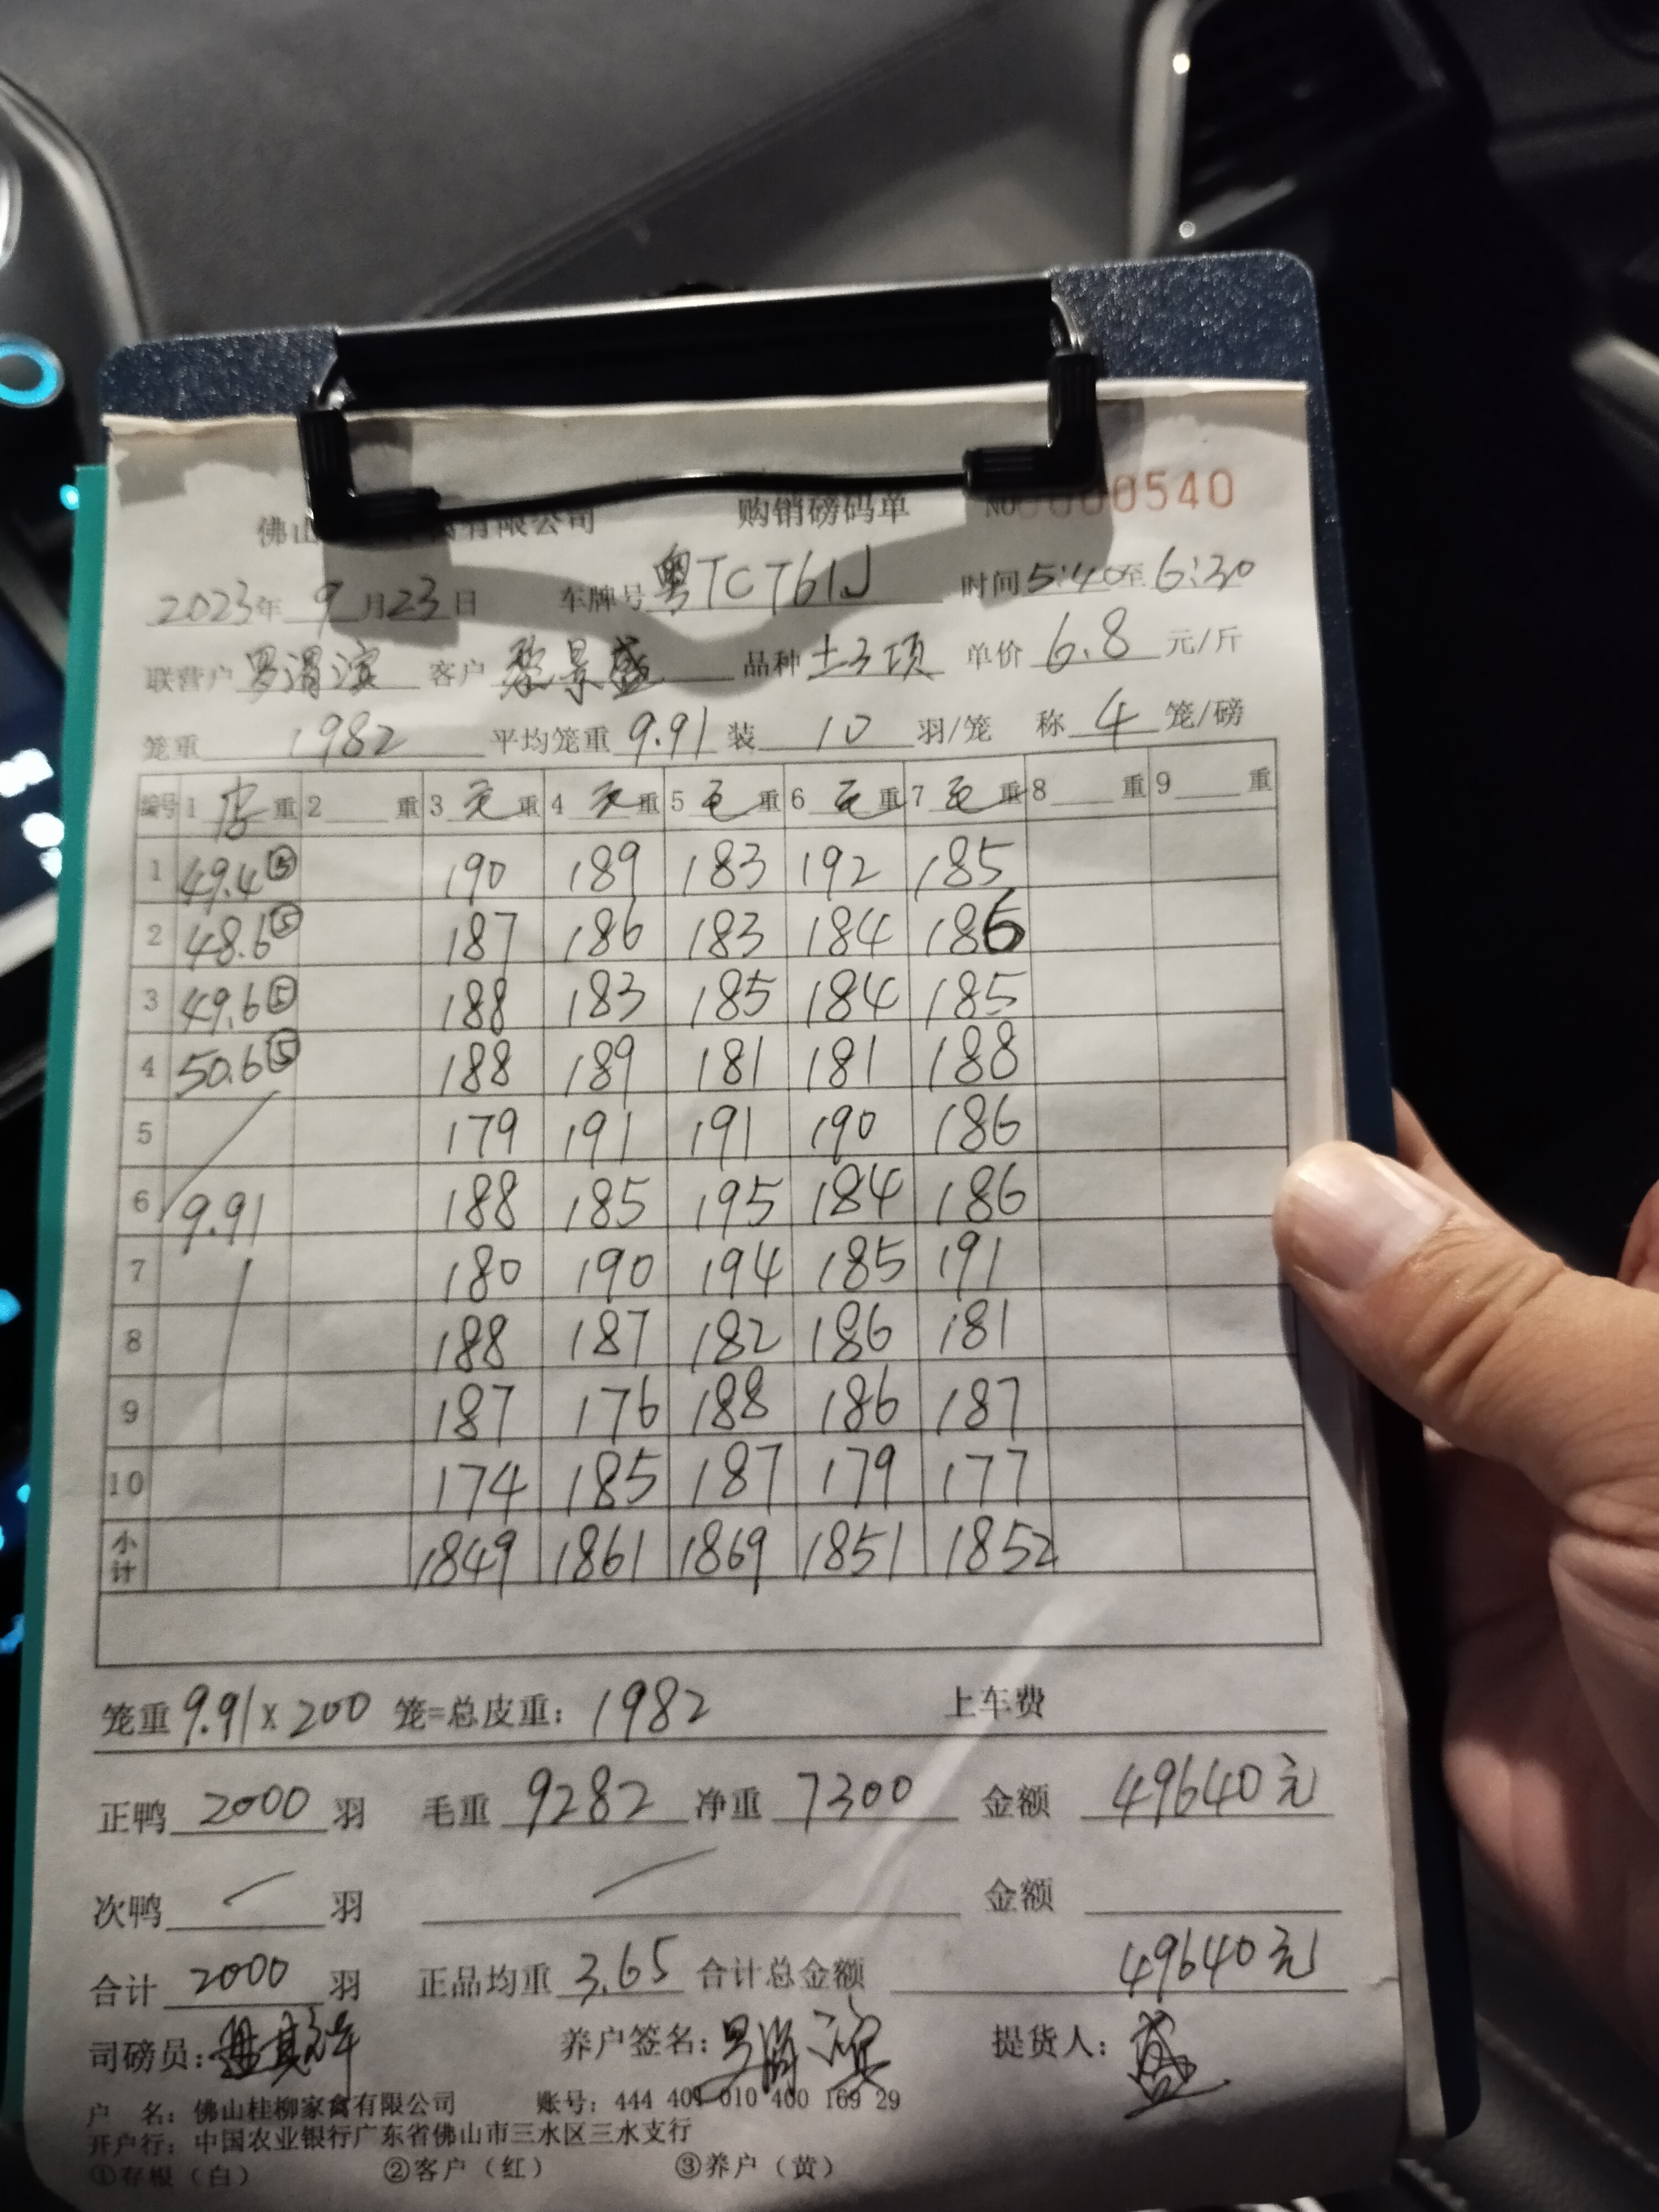 佛山 禽有限公司 购销磅码单 NO 000540
2023年 9 月 23 日 车牌号 粤TCT61J 时间 5:40 至 6:30
联营户 罗渭滨 客户 黎景盛 品种 土3项 单价 6.8 元/斤
笼重 1982 平均笼重 9.91 装 10 羽/笼 称 4 笼/磅
编号 1 皮 重 2 重 3 毛 重 4 毛 重 5 毛 重 6 毛 重 7 毛 重 8 重 9 重
1 49.4⑤ 190 189 183 192 185
2 48.6⑤ 187 186 183 184 186
3 49.6⑤ 188 183 185 184 185
4 50.6⑤ 188 189 181 181 188
5 179 191 191 190 186
6 9.91 188 185 195 184 186
7 180 190 194 185 191
8 188 187 182 186 181
9 187 176 188 186 187
10 174 185 187 179 177
小计 1849 1861 1869 1851 1852
笼重 9.91 x 200 笼=总皮重: 1982 上车费
正鸭 2000 羽 毛重 9282 净重 7300 金额 49640元
次鸭 羽 金额
合计 2000 羽 正品均重 3.65 合计总金额 49640元
司磅员: 养户签名: 罗渭滨 提货人: 盛
户 名: 佛山桂柳家禽有限公司 账号: 444 401 010 400 169 29
开户行: 中国农业银行广东省佛山市三水区三水支行
①存根（白） ②客户（红） ③养户（黄）